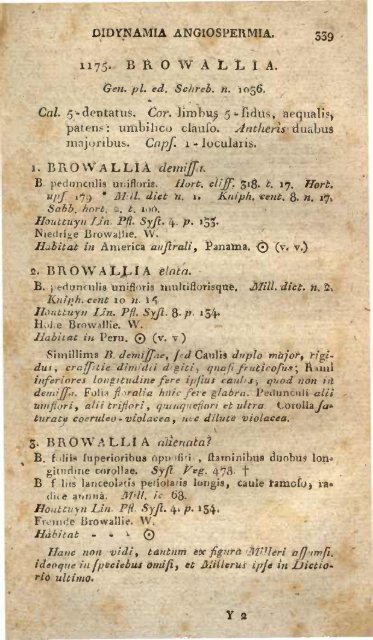 DIDYNAMIA ANGIOSPERMIA. 339
1175. BROWALLIA.
Gen. pl. ed. Schreb. n. 1036.
Cal. 5-dentatus. Cor. limbus 5-fidus, aequalis,
patens: umbilico clauso. Antheris duabus
majoribus. Capſ. 1-locularis.
1. BROWALLIA demiſſa.
B. pedunculis unifloris. Hort. cliff. 318. t. 17. Hort.
upſ 179 * Mill. dict n. 1. Kniph. cent. 8. n. 17.
Sabb. hort. 2. t. 100.
Houttuyn Lin. Pfl. Syſt. 4. p. 153.
Niedrige Browallie. W.
Habitat in America auſtrali, Panama. ☉ (v. v.)
2. BROWALLIA elata.
B. pedunculis unifloris multiflorisque. Mill. dict. n. 2.
Kniph. cent 10 n. 15
Houttuyn Lin. Pfl. Syſt. 8. p. 154.
Hohe Browallie. W.
Habitat in Peru. ☉ (v. v)
Simillima B. demiſſae, ſed Caulis duplo major, rigi-
dus, craſſitie dimidii digiti, quaſi fruticoſus; Rami
inferiores longitudine fere ipſius caulis, quod non in
demiſſa. Folia floralia huic fere glabra. Pedunculi alii
uniflori, alii triflori, quinqueflori et ultra Corolla ſa-
turate coeruleo-violacea, nec dilute violacea.
3. BROWALLIA alienata?
B. foliis ſuperioribus oppoſitis, ſtaminibus duobus lon-
gitudine corollae. Syſt Veg. 478. †
B foliis lanceolatis petiolatis longis, caule ramoſo, ra-
dice annua. Mill. ic 68.
Houttuyn Lin. Pfl. Syſt. 4. p. 154.
Fremde Browallie. W.
Habitat - - ☉
Hanc non vidi, tantum ex figura Milleri aſſumſi,
ideoque in ſpeciebus omiſi, et Millerus ipſe in Dictio-
rio ultimo.
Y 2